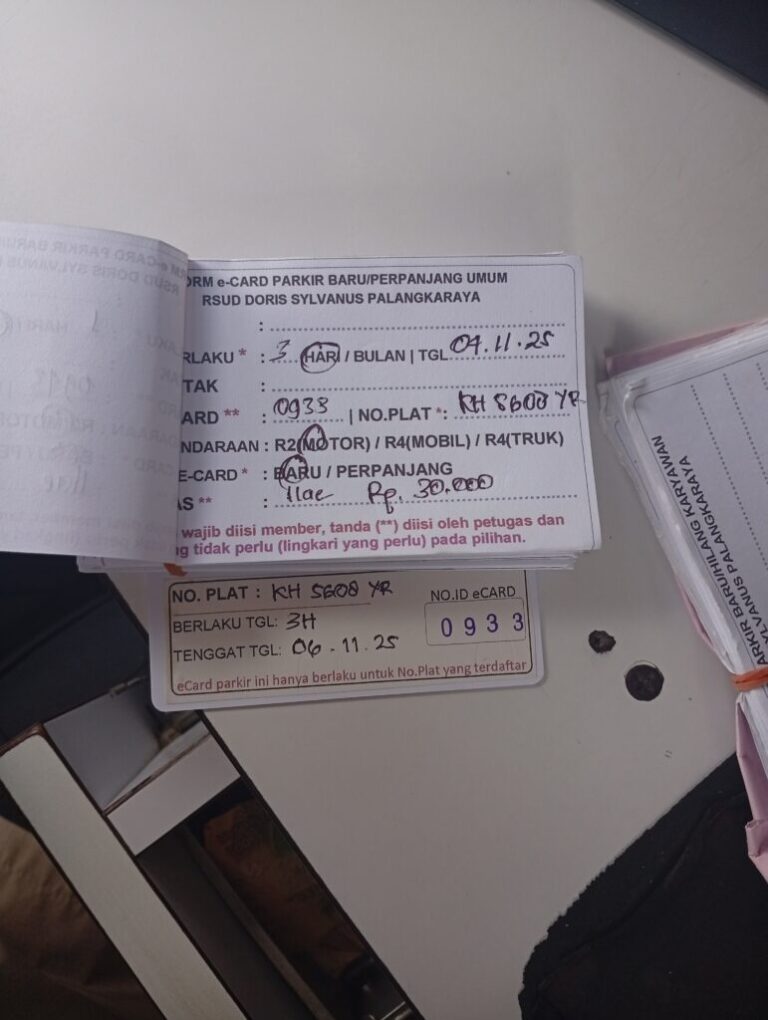 ORM e-CARD PARKIR BARU/PERPANJANG UMUM
RSUD DORIS SYLVANUS PALANGKARAYA
:
RLAKU * : 3 HARI / BULAN | TGL 04.11.25
TAK :
ARD ** : 0933 | NO.PLAT *: KH 5608 YR
NDARAAN : R2(MOTOR) / R4(MOBIL) / R4(TRUK)
E-CARD * : BARU / PERPANJANG
AS ** : Rp. 30.000
wajib diisi member, tanda (**) diisi oleh petugas dan
g tidak perlu (lingkari yang perlu) pada pilihan.
NO. PLAT : KH 5608 YR NO.ID eCARD
BERLAKU TGL: 3H 0933
TENGGAT TGL: 06 - 11 . 25
eCard parkir ini hanya berlaku untuk No.Plat yang terdaftar
ARKIR BARU/HILANG KARYAWAN
YLVANUS PALANGKARAYA